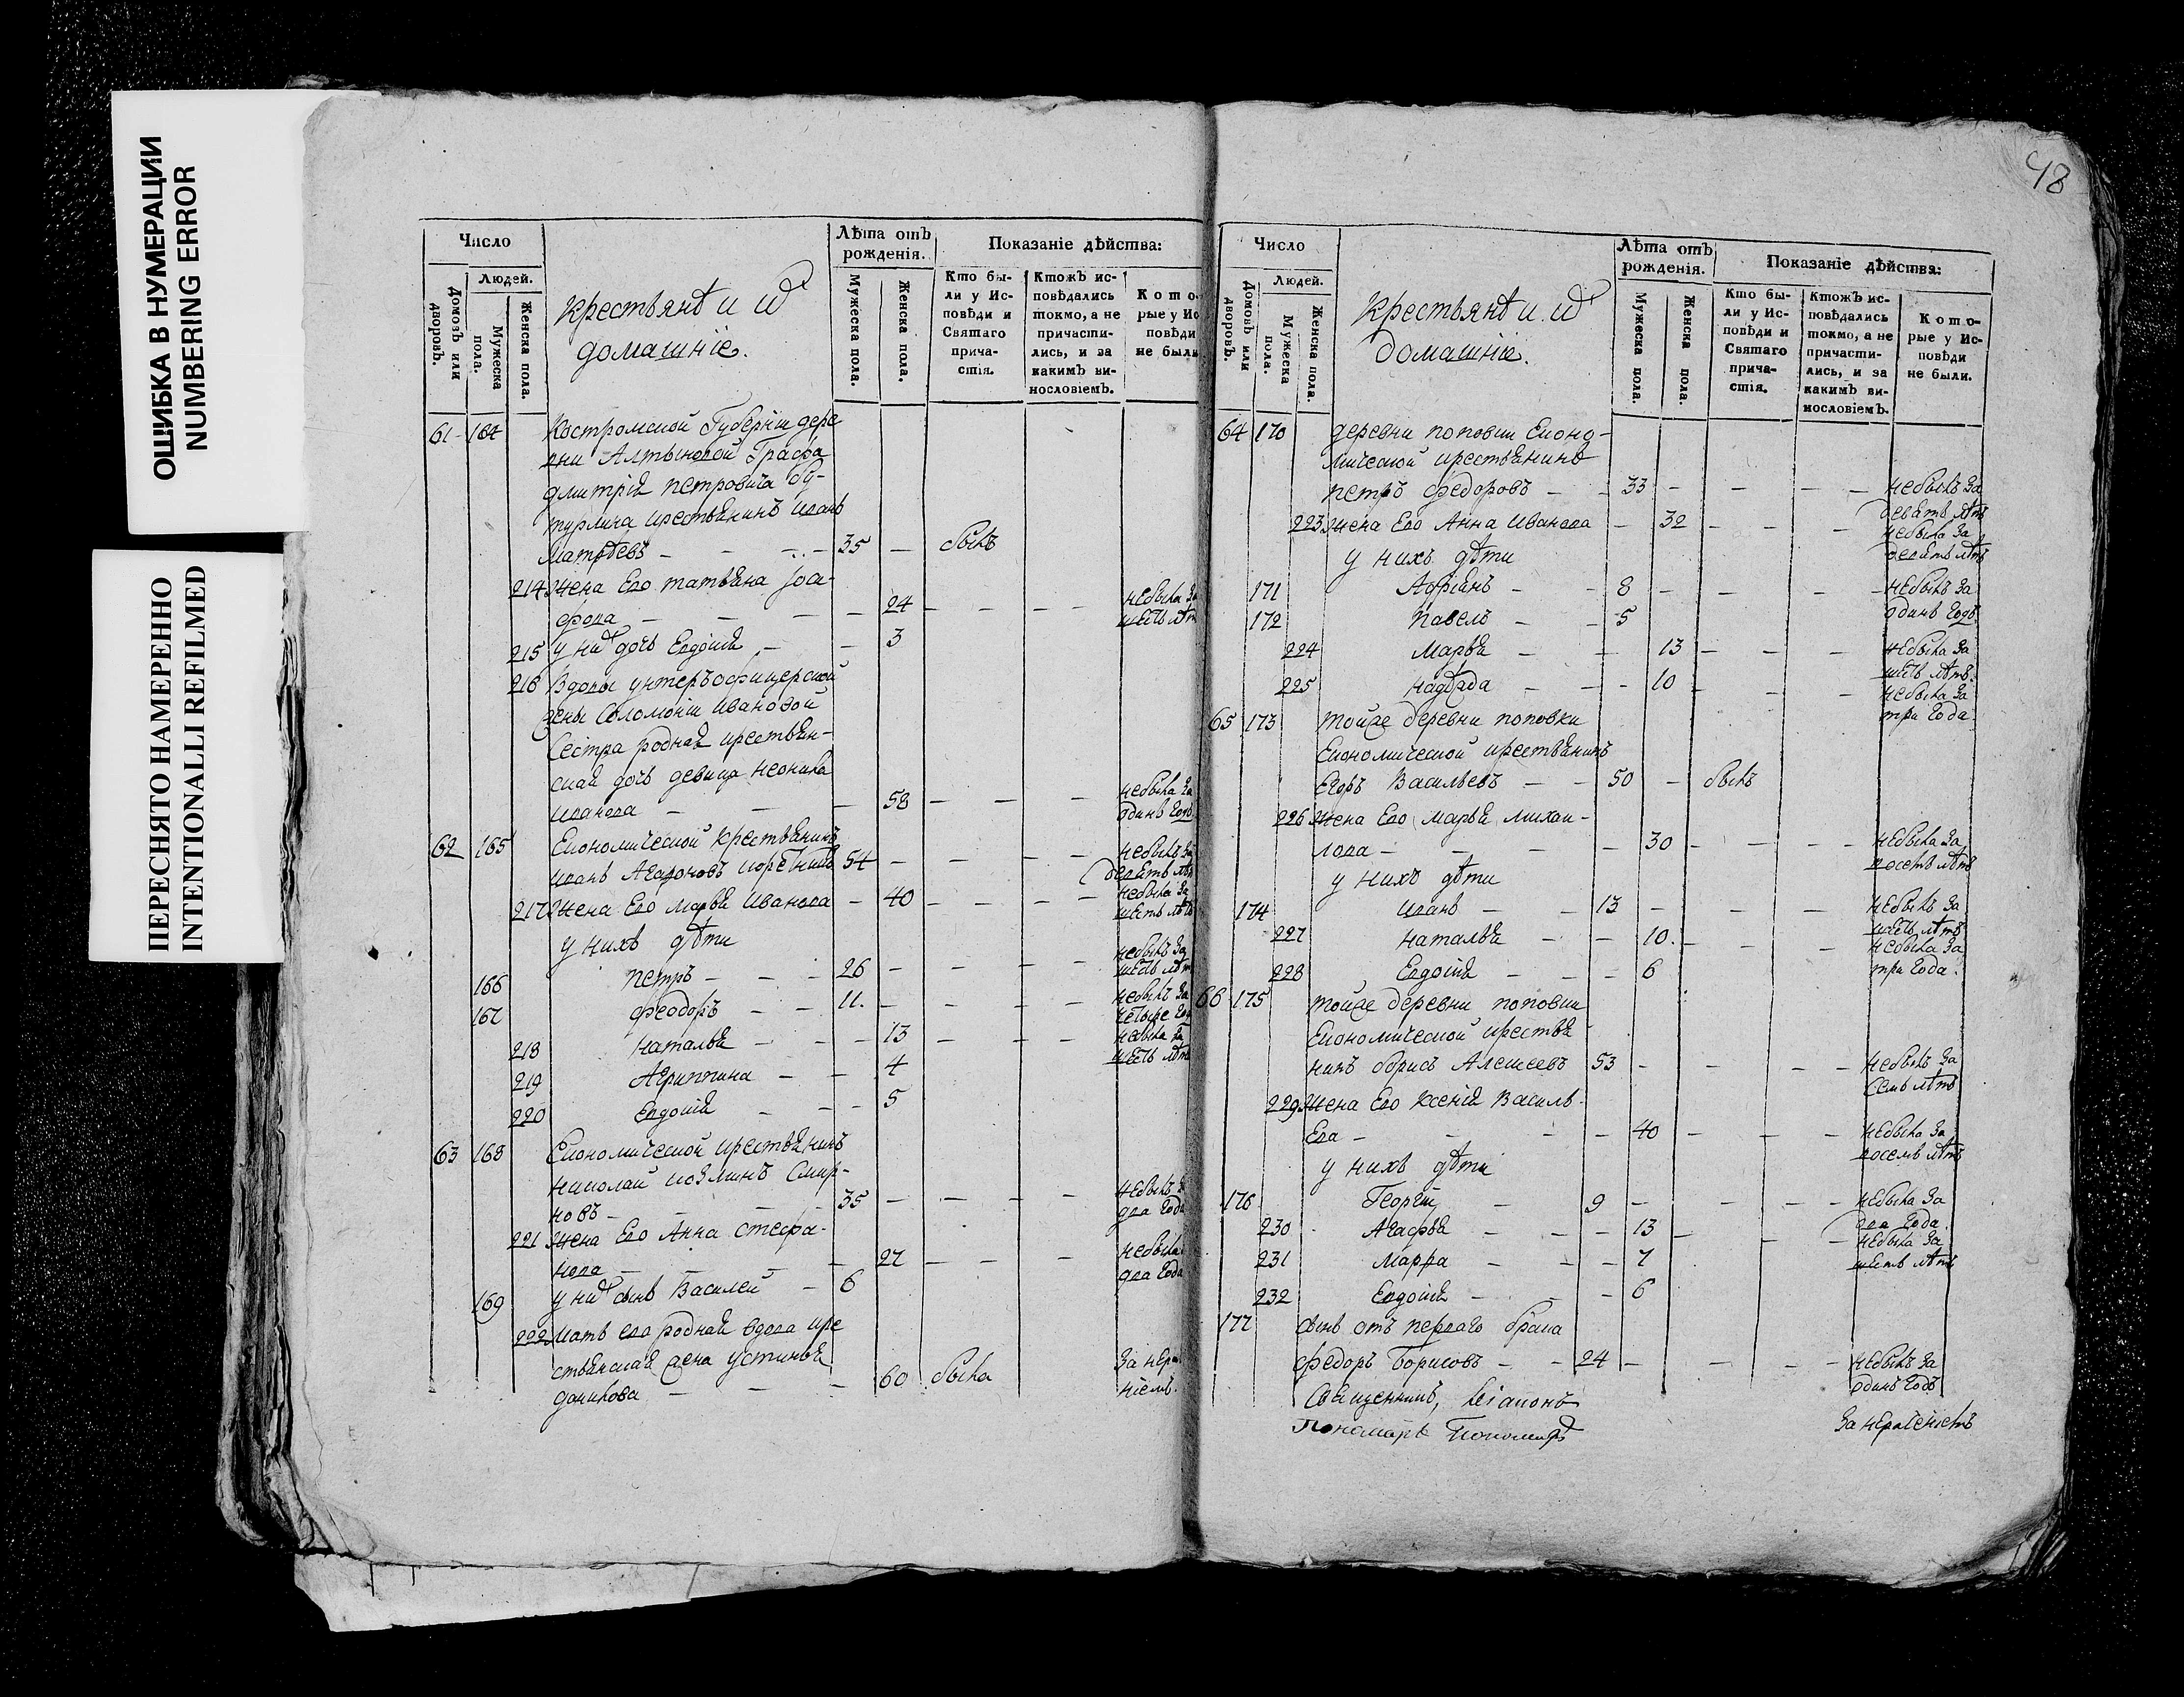 ОШИБКА В НУМЕРАЦИИ
NUMBERING ERROR
ПЕРЕСНЯТО НАМЕРЕННО
INTENTIONALLI REFILMED
Число
Людей.
Домовъ или дворовъ.
Мужеска пола.
Женска пола.
крестьянѣ и их
домашніе.
Лѣта отъ рожденія.
Мужеска пола.
Женска пола.
Показаніе дѣйства:
Кто бы-
ли у Ис-
повѣди и
Святаго
прича-
стія.
Ктожъ ис-
повѣдались
токмо, а не
причасти-
лись, и за
какимъ ви-
нословіемъ.
Кото
рые у Ис
повѣди
не были
61 164 Костромской Губерніи дере
вни Алтыновой Графа
дмитрія петровича бу-
турлина крестьянинъ иванъ
Матвѣевъ - - - 35 - былъ
214 жена Его татьяна Іоси-
фова - - - - 24 - - - - небыла за
шесть лѣт
215 у них дочь Евдокія - - 3
216 Вдовы унтеръофицерской
жены Соломоніи Ивановой
Сестра родная крестьян-
ская дочь девица неонила
иванова - - - 58 - - - небыла за
одинъ годъ
62 165 Економической крестьянинъ
иванъ Агафоновъ 54 - - - - небылъ за
девять лѣт
217 жена Его марья Иванова - 40 - - - - небыла за
шесть лѣтъ
у нихъ дѣти
166 петръ - - - 26 - - - - небылъ за
шесть лѣт
167 феодоръ - - 11. - - - - небылъ за
четыре год
218 наталья - - - 13 - - - небыла за
шесть лѣт
219 Агриппина - - 4
220 Евдокія - - - 5
63 168 Економической крестьянинъ
николай козминъ Смир-
новъ - - - - 35 - - - - небылъ з
два года
221 жена Его Анна стефа-
нова - - - - 27 - - - небыла
два года
169 у них сынъ Василей - 6
222 мать его родная вдова кре
стьянская жена устинья
данилова - - - 60 была
за нера
ніемъ.
48
Число
Людей.
Домовъ или дворовъ.
Мужеска пола.
Женска пола.
крестьянѣ и их
домашніе.
Лѣта отъ рожденія.
Мужеска пола.
Женска пола.
Показаніе дѣйства:
Кто бы-
ли у Ис-
повѣди и
Святаго
прича-
стія.
Ктожъ ис-
повѣдались
токмо, а не
причасти-
лись, и за
какимъ ви-
нословіемъ.
Кото-
рые у Ис-
повѣди
не были.
64 170 деревни поповки Еконо-
мической крестьянинъ
петръ федоровъ - - 33 - - - - небылъ за
девять лѣтъ
223 жена Его Анна Иванова - 32 - - - небыла за
девять лѣтъ
у нихъ дѣти
171 Адріанъ - - 8 - - - - небылъ за
одинъ годъ.
172 Павелъ - - 5
224 Марья - - 13 - - - небыла за
шесть лѣтъ.
225 надежда - - - 10 - - - небыла за
три года
65 173 тойже деревни поповки
Економической крестьянинъ
Егоръ Васильевъ - - 50 - былъ
226 жена Его марья михаи-
лова - - - - 30 - - - небыла за
восемь лѣтъ
у нихъ дѣти
174 иванъ - - 13 - - - небылъ за
шесть лѣтъ
227 наталья - - 10. - - - небыла за
три года.
228 Евдокія - - - 6
66 175 тойже деревни поповки
Економической крестья
нинъ борисъ Алексеевъ 53 - - - - небылъ за
семь лѣтъ
229 жена Его ксенія Василь-
Ева - - - - 40 - - - небыла за
восемь лѣтъ
у нихъ дѣти
176 Георгій - 9 - - - - небыла за
два года.
230 Агафья - - - 13 - - - небыла за
шесть лѣтъ
231 марфа - - - 7
232 Евдокія - - - 6
177 сынъ отъ перваго брака
федоръ Борисовъ - - 24 - - - - небылъ за
одинъ годъ
Священникъ,
Пономарь
За нераченіемъ